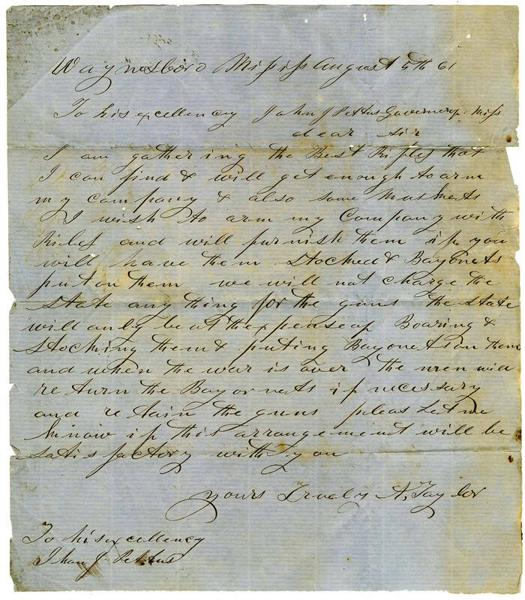 Waynesboro Mississ August 5th 61
To his excellency John J Pettus Governer of Miss
dear Sir
I am gathering the Best Rifles that
I can find & will get enough to arm
my company & also some muskets
I wish to arm my Company with
Rifles and will furnish them if you
will have them stocked & Bayonets
put on them we will not charge the
State any thing for the guns the State
will only be at the expense of Boaring &
Stocking them & puting Bayonets on them
and when the war is over the men will
return the Bayonets if necessary
and retain the guns pleas Let me
know if this arrangement will be
satisfactory with you
yours Truely A. Taylor
To his excellency
J Pettus